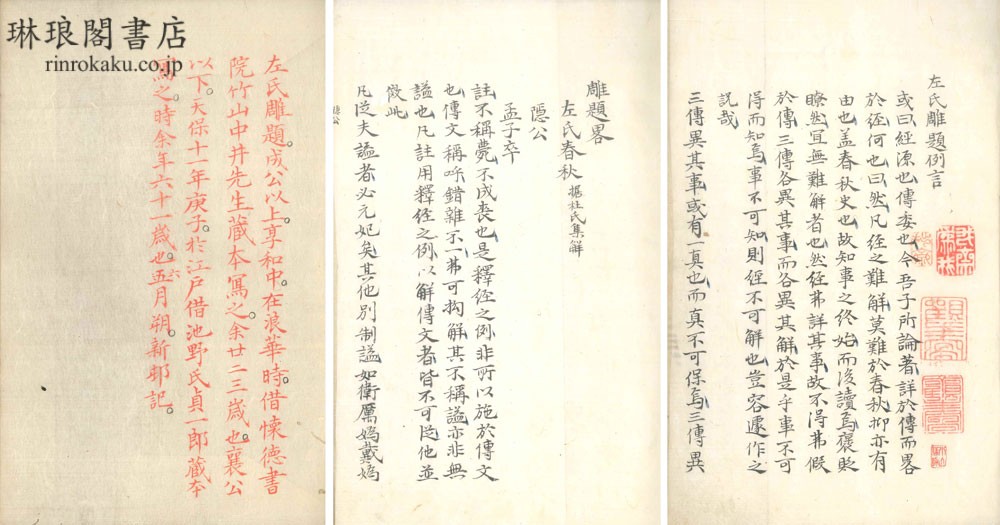 左氏雕題例言
或曰經源也傳委也今吾子所論著詳於傳而畧
於經何也曰然凡經之難解莫難於春秋抑亦有
由也盖春秋史也故知事之終始而後讀焉褒貶
瞭然宜無難解者也然經弗詳其事故不得弗假
於傳三傳各異其事而各異其解於是乎事不可
得而知焉事不可知則經不可解也豈容遽作之
説哉
三傳異其事或有一真也而真不可保焉三傳異
雕題畧
左氏春秋 據杜氏集解
隠公
孟子卒
註不稱薨不成喪也是釋經之例非所以施於傳文
也傳文稱呼錯雜不一弗可拘解其不稱謚亦非無
謚也凡註用釋經之例以解傳文者皆不可從他並
倣此
凡從夫謚者必元妃矣其他別制謚如衛厲嬀戴嬀
隠公
琳琅閣書店
rinrokaku.co.jp
左氏雕題。成公以上。享和中。在浪華時借懐德書
院竹山中井先生蔵本寫之。余廿二三歳也。襄公
以下。天保十一年庚子。於江戸借池野氏貞一郎蔵本
寫之。時余年六十一歳也。六五月朔。新邨記。